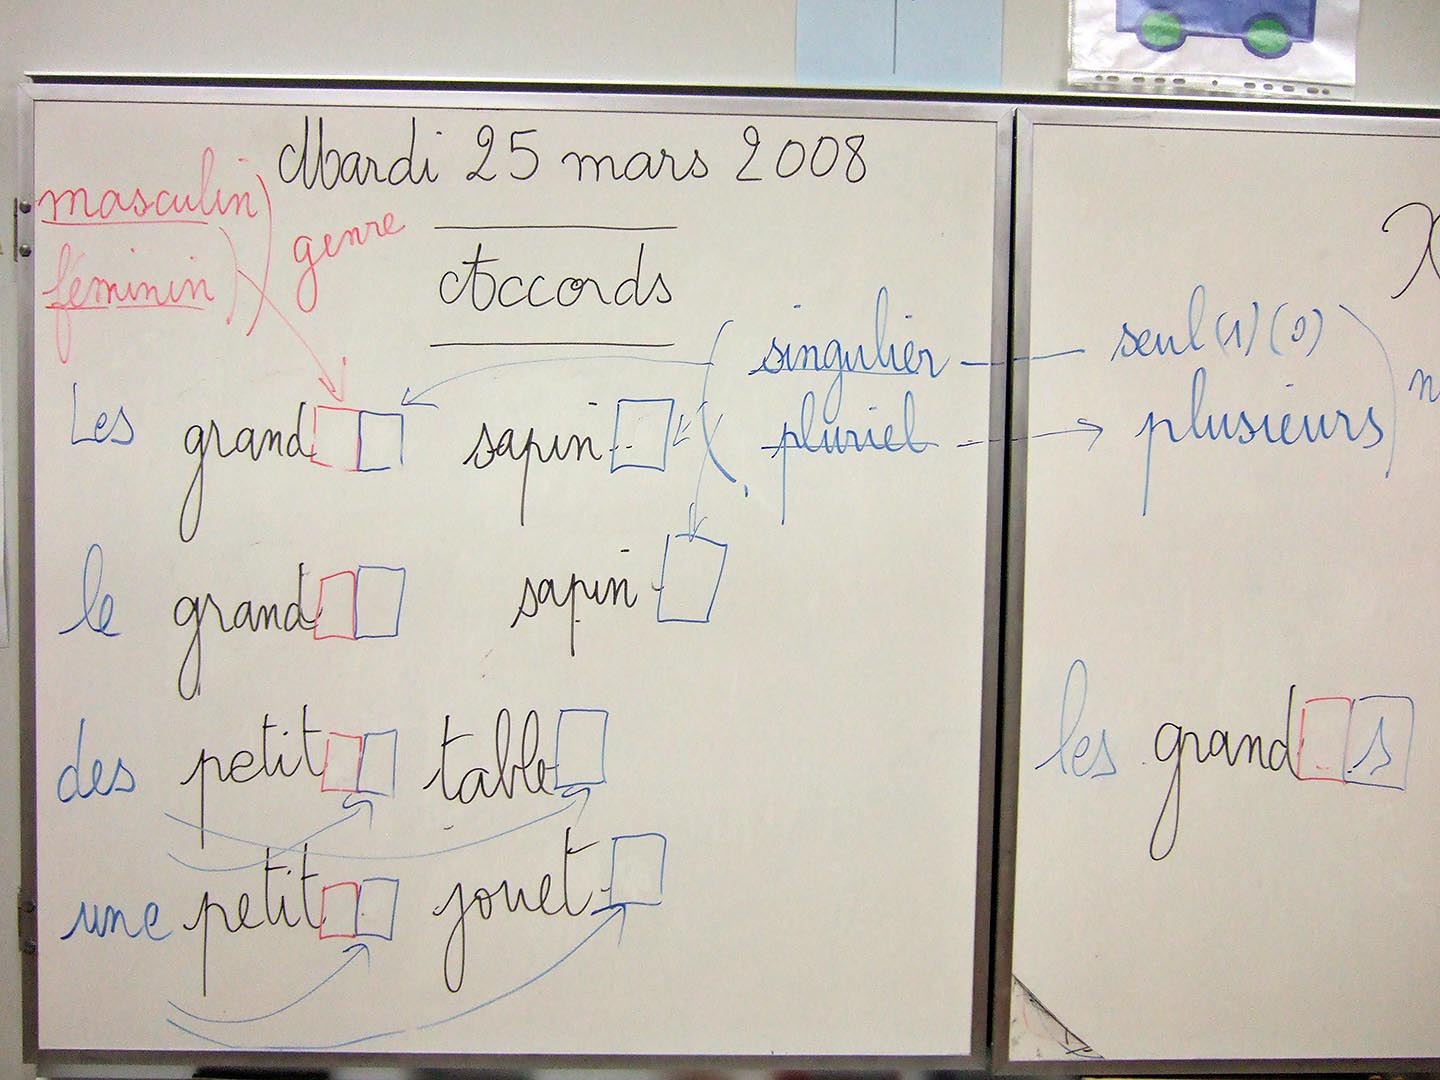 Mardi 25 mars 2008
masculin
féminin
genre
Accords
singulier seul (1) (0)
pluriel plusieurs
Les grand sapin
le grand sapin
des petit table
une petit jouet
les grand s